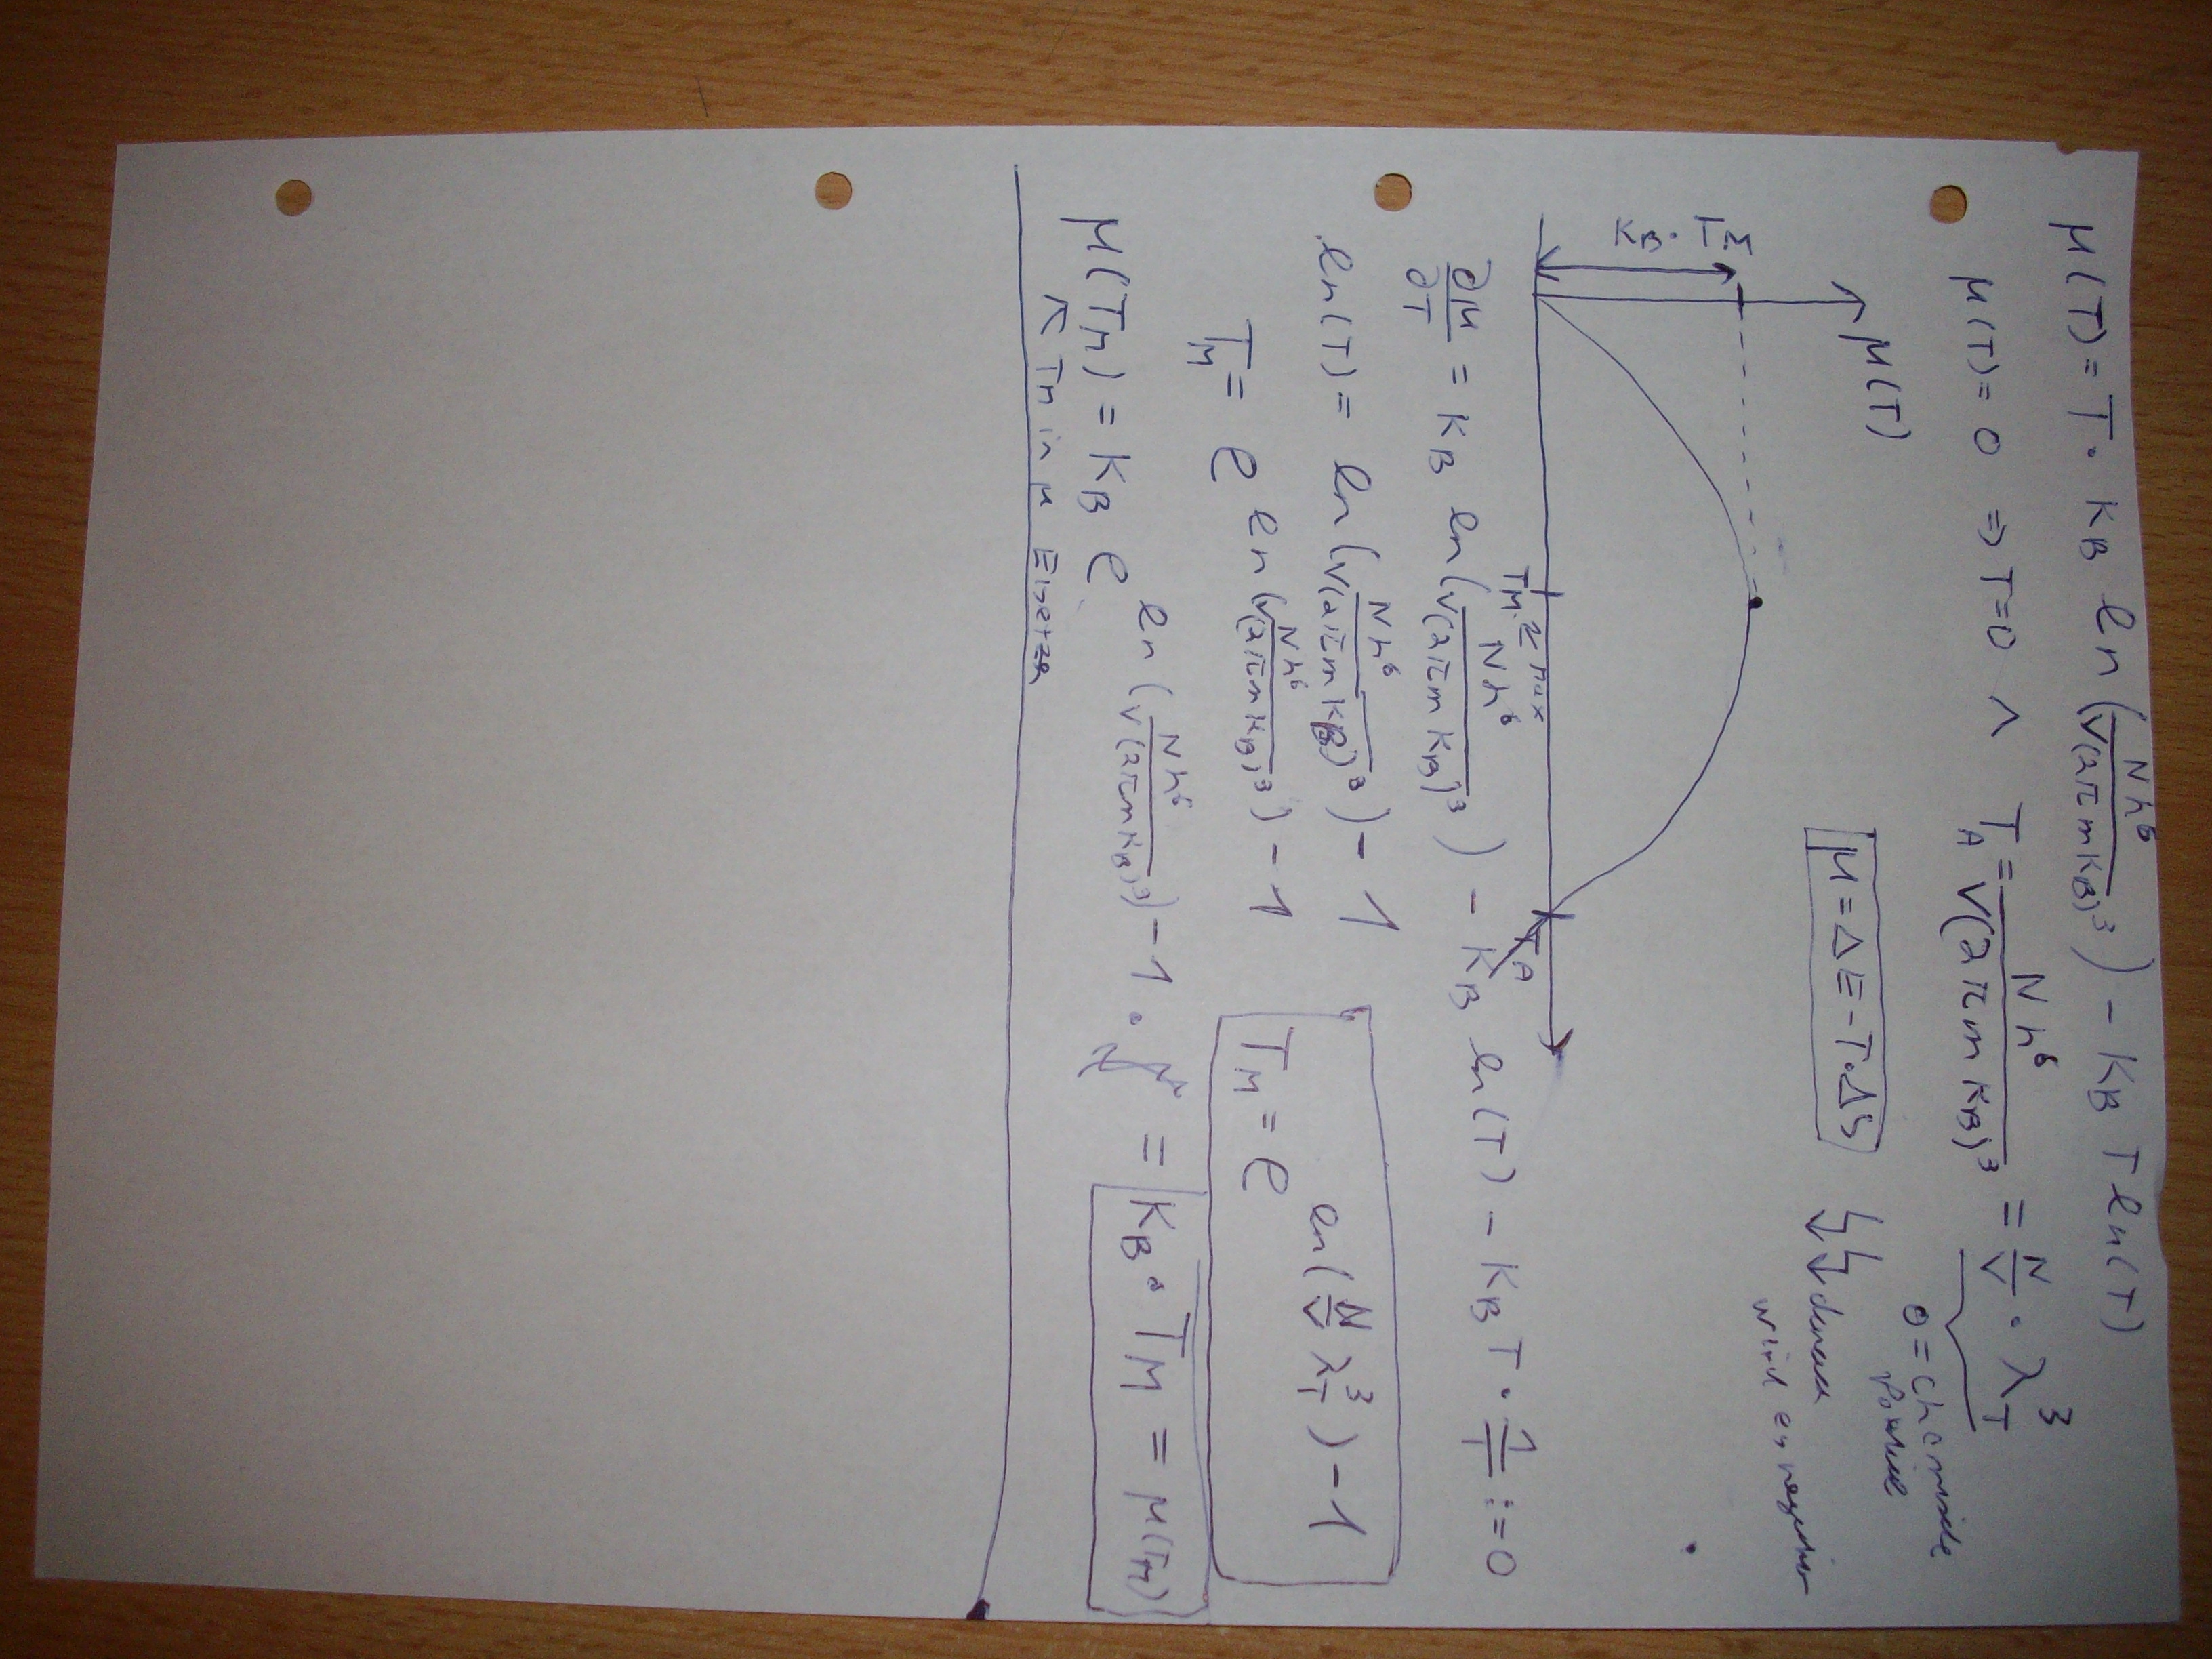 μ(T) = T · K_B ln(Nh⁶/V(2πmK_B)³) − K_B T ln(T)
μ(T) = 0 ⇒ T=0 ∧ T_A = Nh⁶/V(2πmK_B)³ = N/V · λ_T³
μ(T)
μ = ΔE − T·ΔS
danach
wird es negativ
K_B · T_M
T_M ≙ max
T_A
∂μ/∂T = K_B ln(Nh⁶/V(2πmK_B)³) − K_B ln(T) − K_B T · 1/T := 0
ln(T) = ln(Nh⁶/V(2πmK_B)³) − 1
T_M = e^{ln(Nh⁶/V(2πmK_B)³) − 1}
T_M = e^{ln(N/V λ_T³) − 1}
μ(T_M) = K_B e^{ln(Nh⁶/V(2πmK_B)³) − 1} · = K_B · T_M = μ(T_M)
↖ T_M in μ Einsetzen